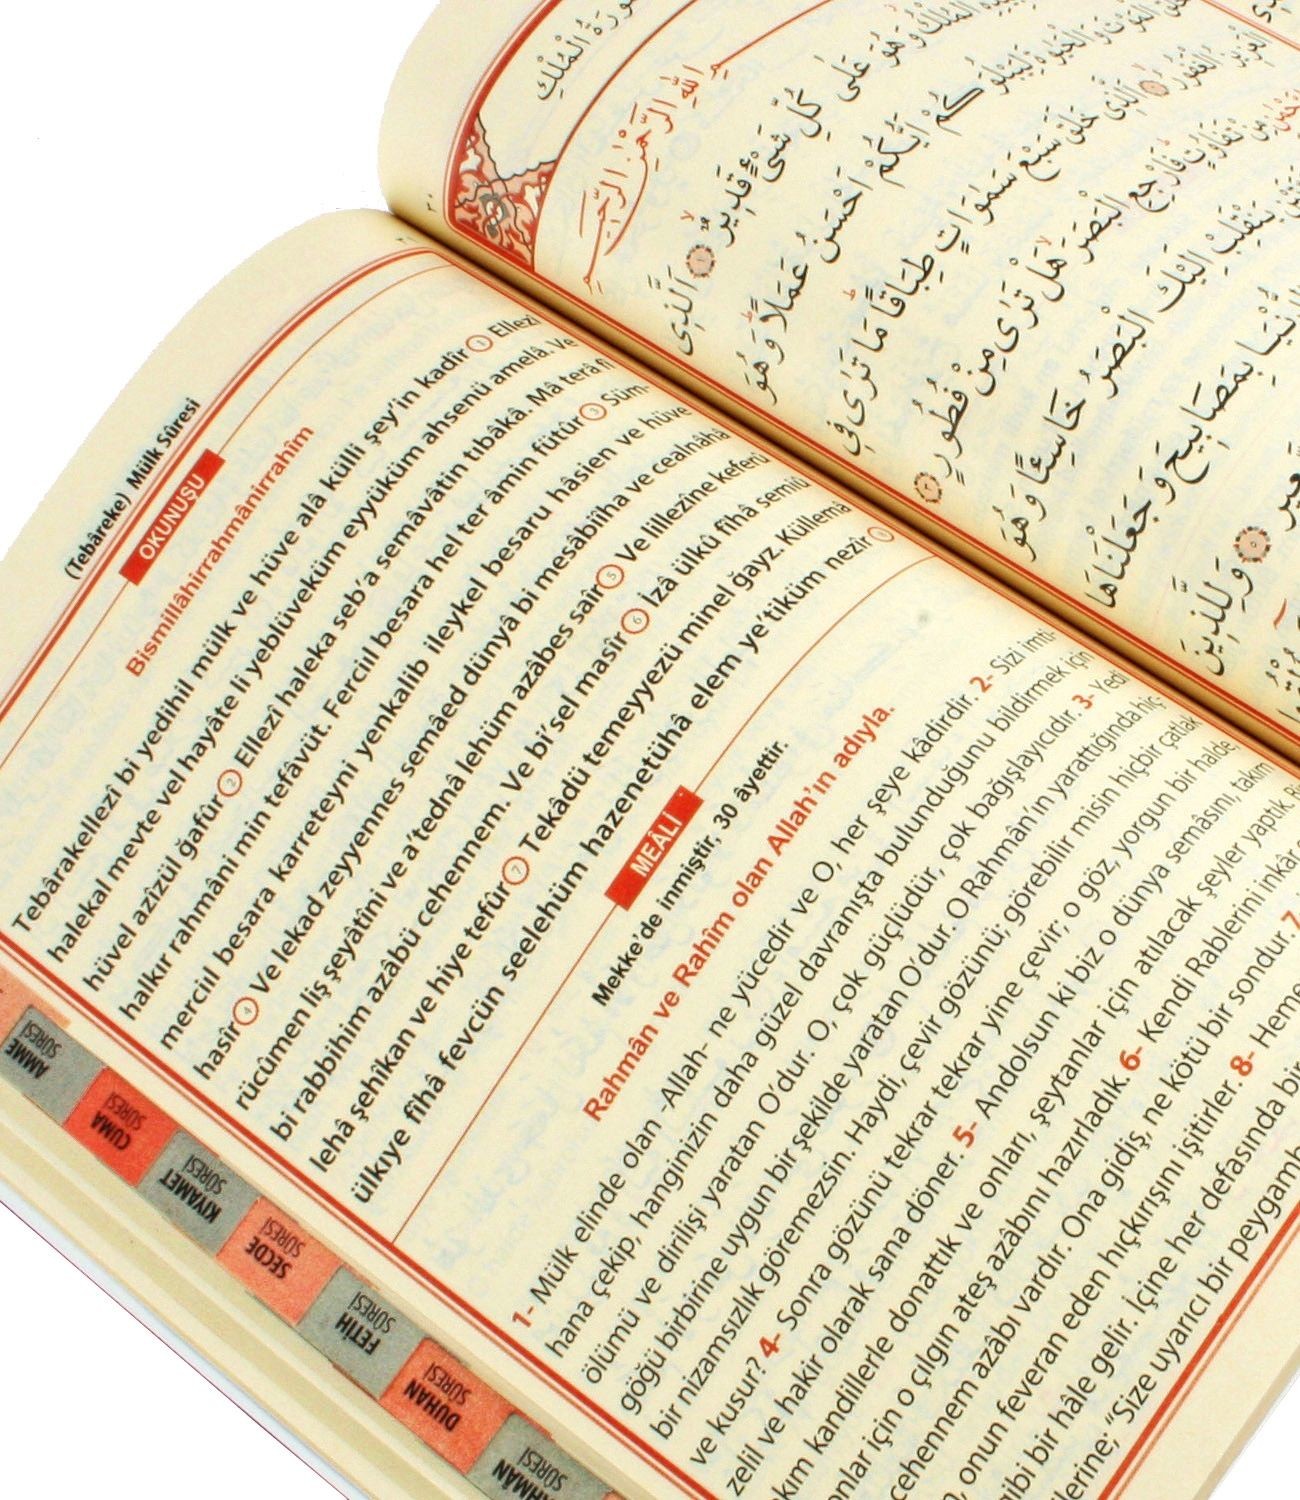 (Tebâreke) Mülk Sûresi
OKUNUŞU
Bismillâhirrahmânirrahîm
Tebârakellezî bi yedihil mülk ve hüve alâ külli şey'in kadîr 1 Ellezî
halekal mevte vel hayâte li yeblüveküm eyyüküm ahsenü amelâ. Ve
hüvel azîzül ğafûr 2 Ellezî haleka seb'a semâvâtin tıbâkâ. Mâ terâ fî
halkır rahmâni min tefâvüt. Ferciıl besara hel ter âmin fütûr 3 Süm-
merciıl besara karreteyni yenkalib ileykel besaru hâsien ve hüve
hasîr 4 Ve lekad zeyyennes semâed dünyâ bi mesâbîîha ve cealnâhâ
rücûmen liş şeyâtîni ve a'tednâ lehüm azâbes saîr 5 Ve lillezîne keferû
bi rabbihim azâbü cehennem. Ve bi'sel masîr 6 İzâ ülkû fîhâ semiû
lehâ şehîkan ve hiye tefûr 7 Tekâdü temeyyezü minel ğayz. Küllemâ
ülkıye fîhâ fevcün seelehüm hazenetühâ elem ye'tiküm nezîr 8
MEÂLİ
Mekke'de inmiştir, 30 âyettir.
Rahmân ve Rahîm olan Allah'ın adıyla.
1- Mülk elinde olan -Allah- ne yücedir ve O, her şeye kâdirdir. 2- Sizi imti-
hana çekip, hanginizin daha güzel davranışta bulunduğunu bildirmek için
ölümü ve dirilişi yaratan O'dur. O, çok güçlüdür, çok bağışlayıcıdır. 3- Yedi
göğü birbirine uygun bir şekilde yaratan O'dur. O Rahmân'ın yarattığında hiç-
bir nizamsızlık göremezsin. Haydi, çevir gözünü; görebilir misin hiçbir çatlak
ve kusur? 4- Sonra gözünü tekrar tekrar yine çevir; o göz, yorgun bir halde,
zelil ve hakir olarak sana döner. 5- Andolsun ki biz o dünya semâsını, takım
kım kandillerle donattık ve onları, şeytanlar için atılacak şeyler yaptık.
onlar için o çılgın ateş azabını hazırladık. 6- Kendi Rablerini inkâr
cehennem azâbı vardır. Ona gidiş, ne kötü bir sondur. 7
onun feveran eden hıçkırışını işitirler. 8- Heme
gibi bir hâle gelir. İçine her defasında bir
lerine; "Size uyarıcı bir peygamb
AMME SÛRESİ
CUMA SÛRESİ
KIYAMET SÛRESİ
SECDE SÛRESİ
FETİH SÛRESİ
DUHAN SÛRESİ
SÛRESİ
سُورَةُ الْمُلْكِ
اللّٰهِ الرَّحْمٰنِ الرَّحِيمِ
الْمُلْكُ وَهُوَ عَلٰى كُلِّ شَيْءٍ قَدِيرٌ ١ اَلَّذِى
الْمَوْتَ وَالْحَيٰوةَ لِيَبْلُوَكُمْ اَيُّكُمْ اَحْسَنُ عَمَلًا وَهُوَ
الْعَزِيزُ الْغَفُورُ ٢ اَلَّذِى خَلَقَ سَبْعَ سَمٰوَاتٍ طِبَاقًا مَا تَرٰى فِى
مِنْ تَفَاوُتٍ فَارْجِعِ الْبَصَرَ هَلْ تَرٰى مِنْ فُطُورٍ ٣
يَنْقَلِبْ اِلَيْكَ الْبَصَرُ خَاسِئًا وَهُوَ
الدُّنْيَا بِمَصَابِيحَ وَجَعَلْنَاهَا
السَّعِيرِ ٥ وَلِلَّذِينَ